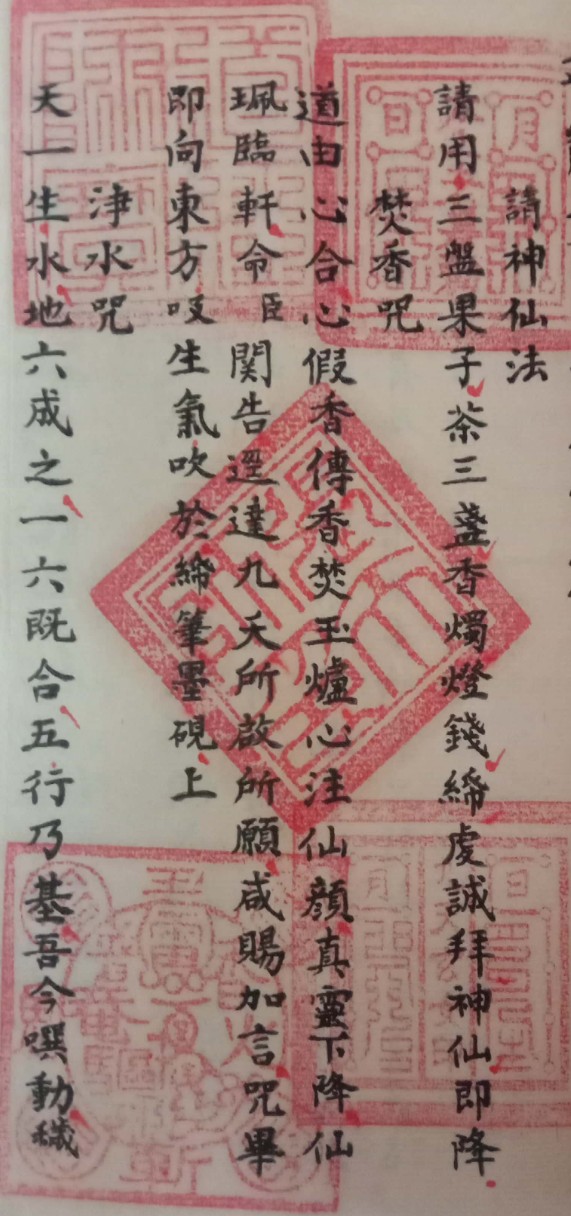 請神仙法
請用三盤果子茶三盞香燭燈錢締虔誠拜神仙即降
焚香咒
道由心合心假香傳香焚玉爐心注仙顔真靈下降仙
珮臨軒命臣関告逕達九天所啟所願咸賜加言咒畢
即向東方吱生氣吹於締筆墨硯上
淨水咒
天一生水地六成之一六既合五行乃基吾今噀動穢